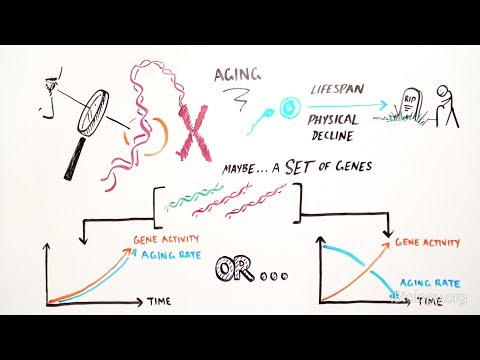 AGING
LIFESPAN
PHYSICAL
DECLINE
RIP
MAYBE... A SET OF GENES
GENE ACTIVITY
AGING RATE
TIME
OR...
GENE ACTIVITY
AGING RATE
TIME